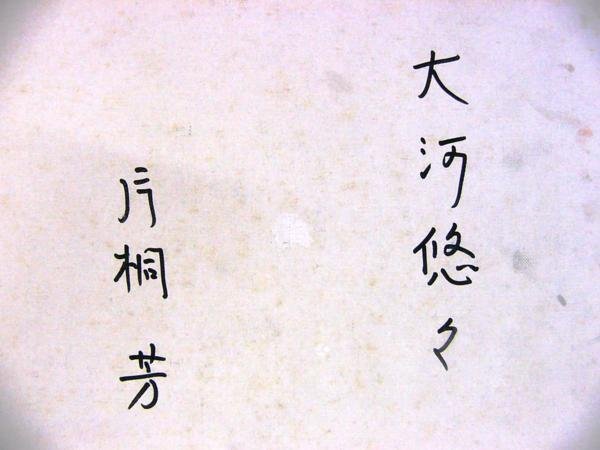 大河悠々
片桐芳